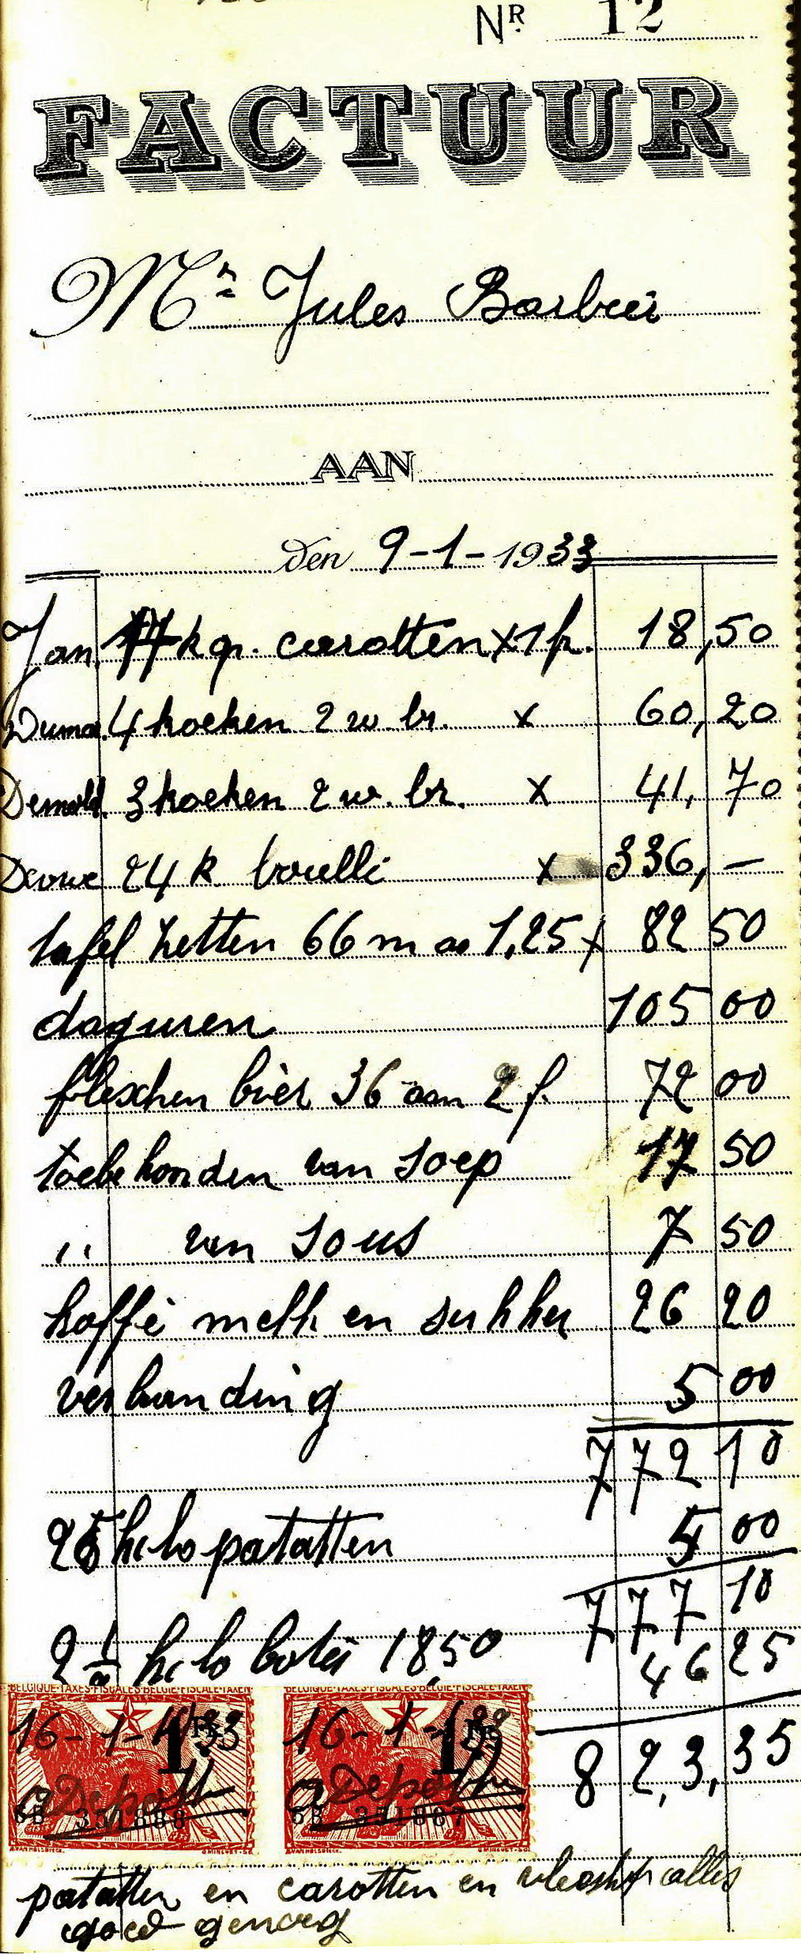 Nʀ 12
FACTUUR
Mʳ Jules Barbier
AAN
Den 9-1-1933
Jan. kgr. carotten x 1 fr. 18,50
4 koeken 2 w. br. x 60,20
3 koeken 2 w. br. x 41,70
24 k. bouilli x 336,—
tafel zetten 66 m aa 1,25 x 82 50
daguren 105 00
flesschen bier 36 aan 2 f. 72 00
toebehoorden van soep 17 50
,, van sous 7 50
koffie melk en sukker 26 20
verbranding 5 00
772 10
25 kilo patatten 5 00
777 10
2 1/2 kilo boter 18,50 46 25
BELGIQUE-TAXES-FISCALES-BELGIE-FISCALE-TAXEN BELGIQUE-TAXES-FISCALES-BELGIE-FISCALE-TAXEN
16-1-1933 16-1-1933
823,35
patatten en carotten en alles
goed genoeg